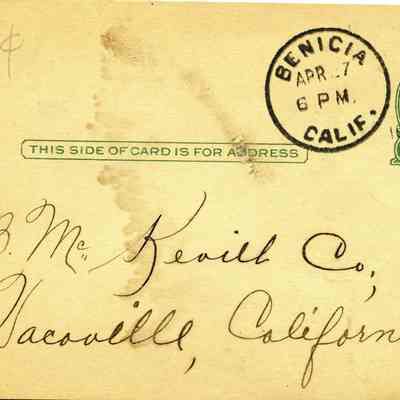 BENICIA
APR 27
6 PM.
CALIF.
THIS SIDE OF CARD IS FOR ADDRESS
B. Mc Kevitt Co,
Vacaville, Californ